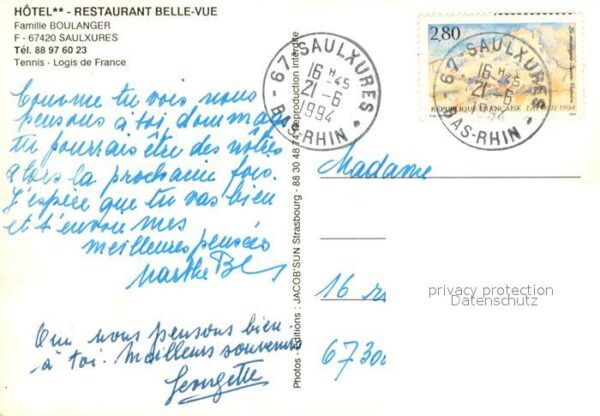 HÔTEL** - RESTAURANT BELLE-VUE
Famille BOULANGER
F - 67420 SAULXURES
Tél. 88 97 60 23
Tennis - Logis de France
Comme tu vois nous
pensons à toi, dommage
tu pourrais être des nôtres
alors la prochaine fois.
J'espère que tu vas bien
et t'envoie mes
meilleures pensées
Marthe
Oui nous pensons bien
à toi. Meilleurs souvenirs
Georgette
Photos - Editions : JACOB'SUN Strasbourg - 88 30 48 Reproduction interdite
67 SAULXURES
16 H 45
21-6
1994
BAS-RHIN
2,80
RÉPUBLIQUE FRANÇAISE
67 SAULXURES
16 H 45
21-6
BAS-RHIN
Madame
16
privacy protection
Datenschutz
67300